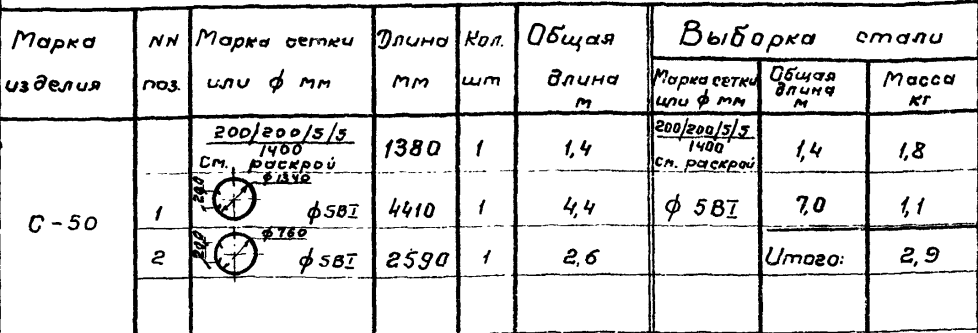 Марка изделия | NN поз. | Марка сетки или ϕ мм | Длина мм | Кол. шт | Общая длина м | Выборка стали
Марка сетки или ϕ мм | Общая длина м | Масса кг
С-50 | 200/200/5/5 / 1400 См. раскрой | 1380 | 1 | 1,4 | 200/200/5/5 / 1400 см. раскрой | 1,4 | 1,8
1 | 200 ϕ1340 ϕ5ВI | 4410 | 1 | 4,4 | ϕ 5ВI | 7,0 | 1,1
2 | 200 ϕ760 ϕ5ВI | 2590 | 1 | 2,6 | Итого: | 2,9